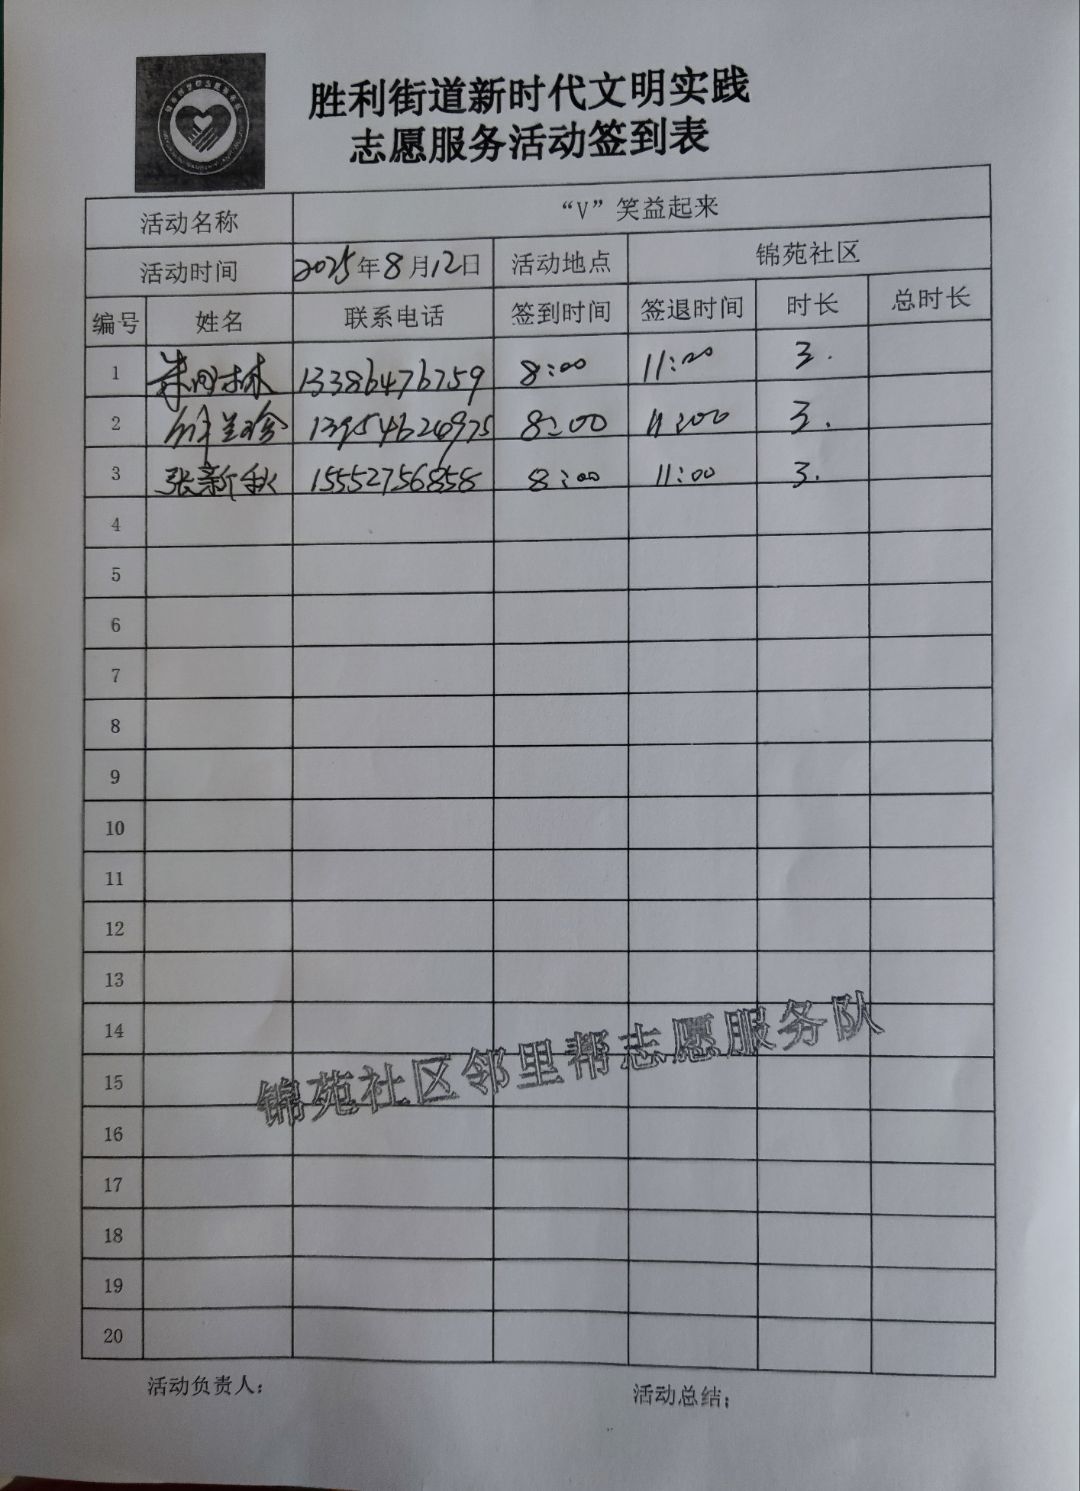 胜利街道新时代文明实践
志愿服务活动签到表
活动名称 “V”笑益起来
活动时间 2025年8月12日 活动地点 锦苑社区
编号 姓名 联系电话 签到时间 签退时间 时长 总时长
1 林 13386476759 8:00 11:00 3.
2 13954624975 8:00 11:00 3.
3 张新秋 15552756858 8:00 11:00 3.
4
5
6
7
8
9
10
11
12
13
14
15
16
17
18
19
20
锦苑社区邻里帮志愿服务队
活动负责人: 活动总结: